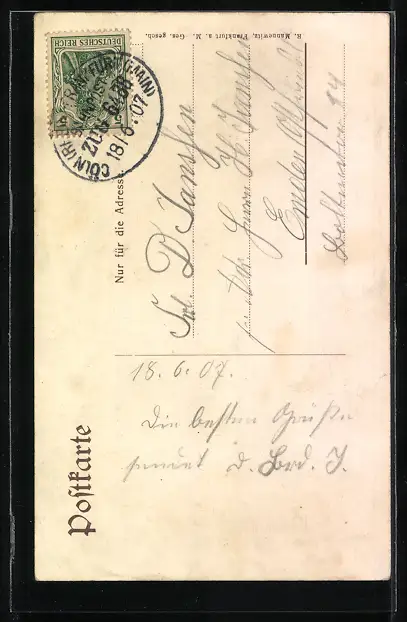 Postkarte
DEUTSCHES REICH
CÖLN (RH)
FRANKFURT (MAIN)
ZUG
18.6.07
Nur für die Adresse
K. Mannewitz, Frankfurt a. M. Ges. gesch.
D Janssen
Herrn H. Janssen
Emden
18. 6. 07.
Die besten Grüße
sendet d. Brd. J.